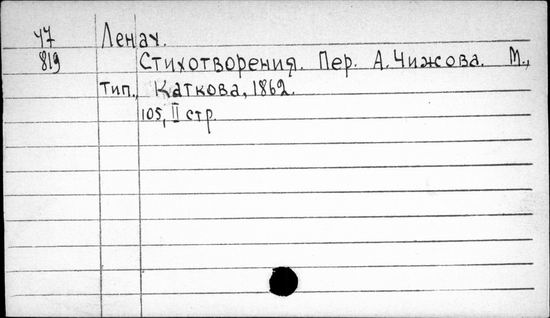 47 Ленах.
819 Стихотворения. Пер. А. Чижова. М.,
тип. Каткова, 1862.
105, II стр.